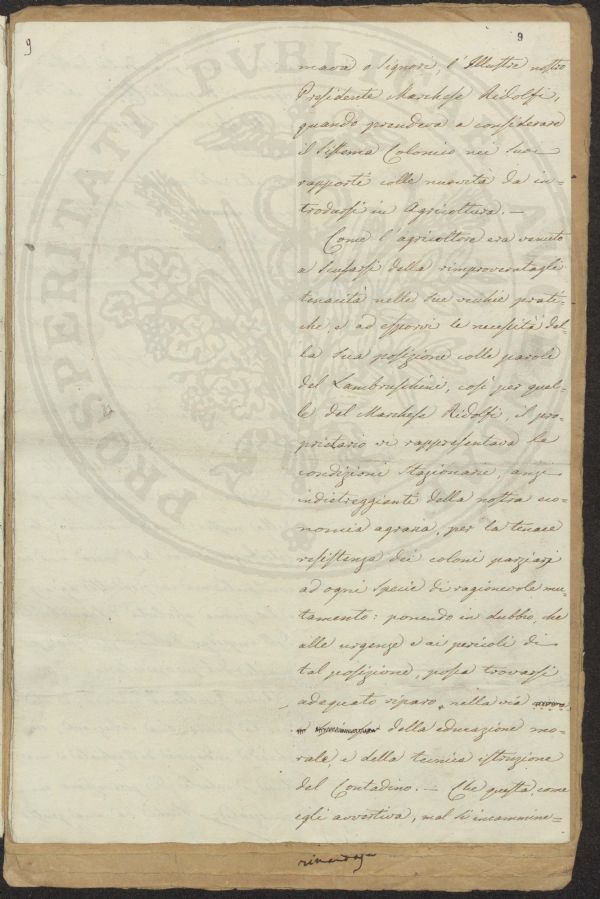 9
9
mava o Signori, l'Illustre nostro
Presidente Marchese Ridolfi,
quando prendeva a considerare
il Sistema Colonico nei suoi
rapporti colle novità da in=
trodursi in Agricoltura. —
Come l'agricoltore era venuto
a scusarsi della rimproveratagli
tenacità nelle sue vecchie prati=
che, e ad esporvi le necessità del=
la sua posizione colle parole
del Lambruschini, così per quel=
le del Marchese Ridolfi, il pro=
prietario vi rappresentava la
condizioni stazionarie, anzi
indietreggiante della nostra eco=
nomia agraria, per la tenace
resistenza dei coloni parziarj
ad ogni specie di ragionevole mu=
tamento: ponendo in dubbio, che
alle urgenze e ai pericoli di
tal posizione, possa trovarsi
adeguato riparo, nella via
della educazione mo=
rale, e della tecnica istruzione
del Contadino. — Che questa, come
egli avvertiva, mal si incammine=
PROSPERITATI PUBLIC